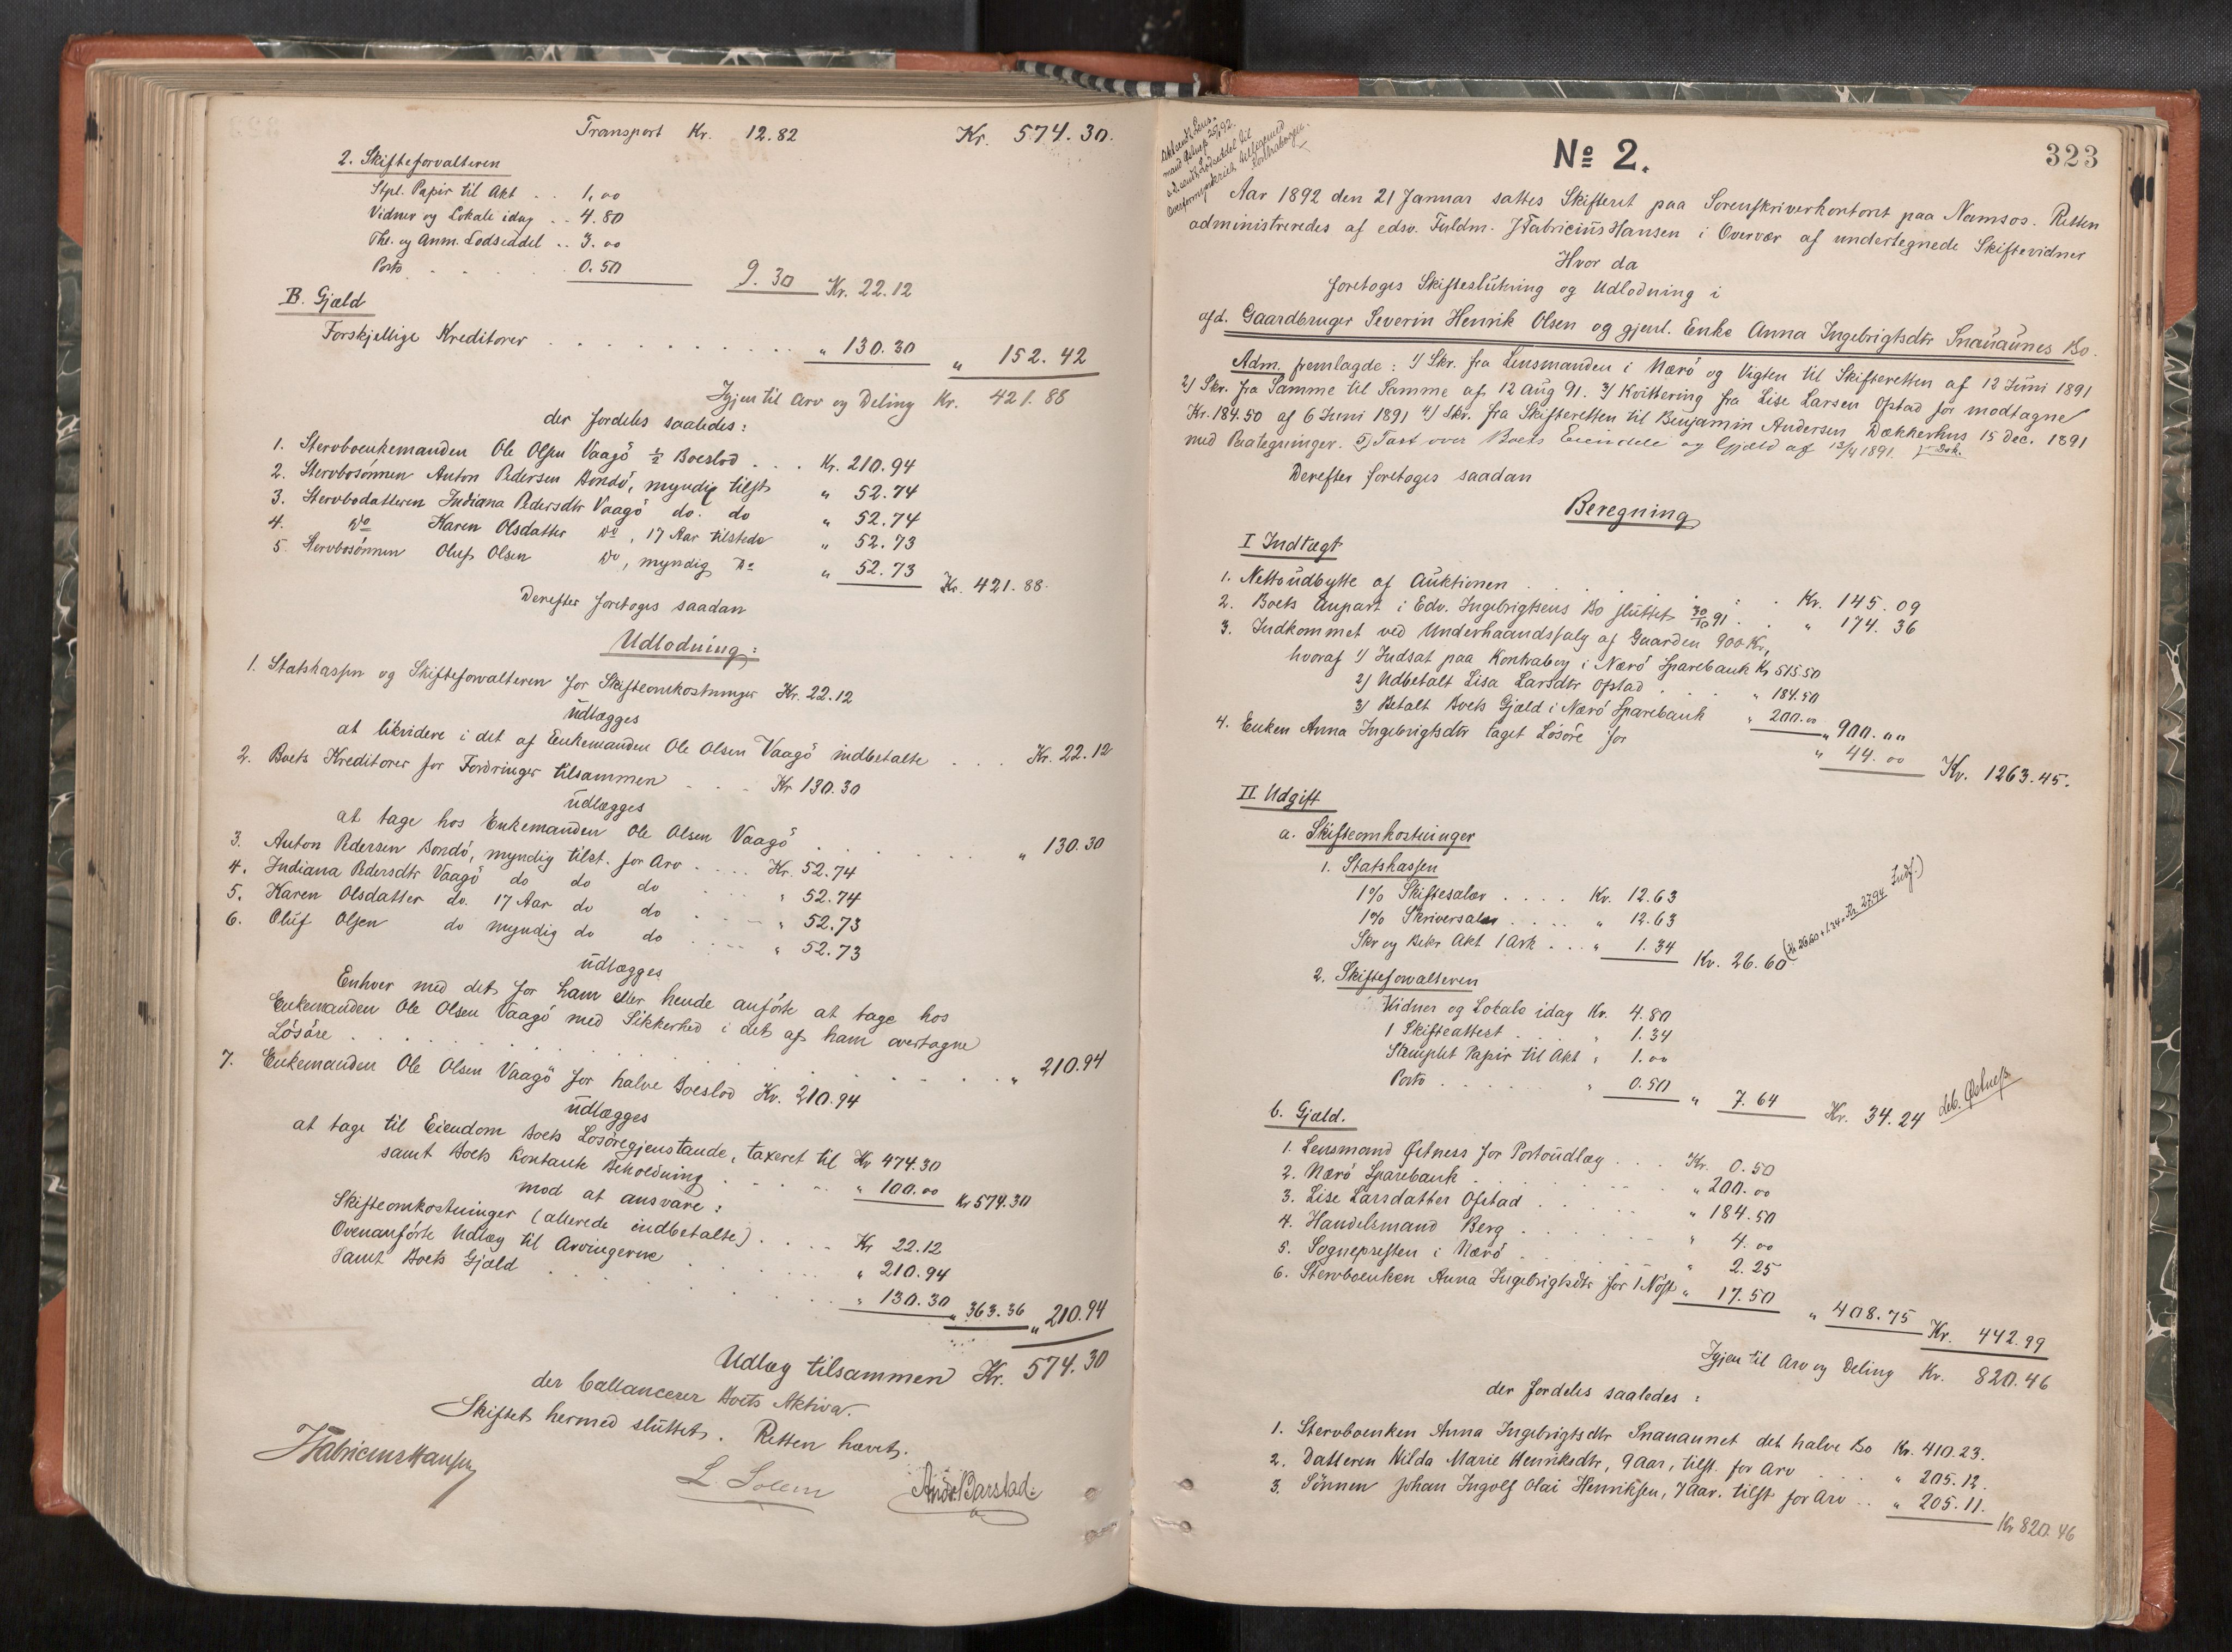 Transport Kr. 12.82 Kr. 574.30.
2. Skifteforvalteren
Stpl. Papir til Akt . . 1,00
Vidner og Lokale idag . . 4.80
Thl. og Anm. Lodseddel . . 3.00
Porto . . . . . 0.50 9.30 Kr. 22.12
B. Gjæld
Forskjellige Kreditorer . . . . . . . . . . " 130.30 " 152.42
Igjen til Arv og Deling Kr. 421.88
der fordeles saaledes:
1. Stervboenkemanden Ole Olsen Vaagö ½ Boeslod . . . Kr. 210.94
2. Stervbosönnen Anton Pedersen Bondö, myndig tilst. " 52.74
3. Stervbodatteren Indiana Pedersdtr Vaagö do. do " 52.74
4. do Karen Olsdatter do, 17 Aar tilstede " 52.73
5. Stervbosönnen Oluf Olsen do, myndig do " 52.73 Kr. 421.88.
Derefter foretoges saadan
Udlodning:
1. Statskassen og Skifteforvalteren for Skifteomkostninger Kr. 22.12
udlægges
at likvidere i det af Enkemanden Ole Olsen Vaagö indbetalte . . . Kr. 22.12
2. Boets Kreditorer for Fordringer tilsammen . . . Kr 130.30
udlægges
at tage hos Enkemanden Ole Olsen Vaagö . . . . . . . " 130.30
3. Anton Pedersen Bondö, myndig tilst. for Arv . . . . Kr. 52.74
4. Indiana Pedersdtr Vaagö do do do . . . " 52.74
5. Karen Olsdatter do. 17 Aar do do . . . " 52.73
6. Oluf Olsen do myndig do do . . . " 52.73
udlægges
Enhver med det for ham eller hende anförte at tage hos
Enkemanden Ole Olsen Vaagö med Sikkerhed i det af ham overtagne
Lösöre . . . . . . . . . . " 210.94
7. Enkemanden Ole Olsen Vaagö for halve Boeslod Kr. 210.94
udlægges
at tage til Eiendom Boets Lösöregjenstande, taxeret til Kr 474.30
samt Boets Kontante Beholdning . . . . . " 100.00 Kr 574.30
mod at ansvare:
Skifteomkostninger (allerede indbetalte) . . . . Kr 22.12
Ovenanförte Udlæg til Arvingerne . . . . . " 210.94
samt Boets Gjæld . . . . . . . " 130.30 " 363.36 " 210.94
Udlæg tilsammen Kr. 574.30
der ballancerer Boets Aktiva.
Skiftet hermed sluttet. Retten hævet.
JFabriciusHansen L. Solem Andr. Barstad.
323
No 2.
Aar 1892 den 21 Januar sattes Skifteret paa Sorenskriverkontoret paa Namsos. Retten
administreredes af edsv. Fuldm. JFabricius Hansen i Overvær af undertegnede Skiftevidner
Hvor da
foretoges Skifteslutning og Udlodning i
afd. Gaardbruger Severin Henrik Olsen og gjenl. Enke Anna Ingebrigtsdtr Snauaunes Bo.
Adm. fremlagde: 1) Skr. fra Lensmanden i Nærö og Vigten til Skifteretten af 12 Juni 1891
2) Skr. fra Samme til Samme af 12 Aug 91. 3) Kvittering fra Lise Larsen Opstad for modtagne
Kr. 184.50 af 6 Juni 1891 4) Skr. fra Skifteretten til Benjamin Andersen Dækkerhus 15 Dec. 1891
med Paategninger. 5) Taxt over Boets Eiendele og Gjæld af 13/4 1891.
Derefter foretoges saadan
Beregning
I Indtægt
1. Nettoudbytte af Auktionen . . . . . . Kr. 145.09
2. Boets Anpart i Edv. Ingebrigtsens Bo sluttet 30/10 91 . . " 174.36
3. Indkommet ved Underhaandssalg af Gaarden 900 Kr,
hvoraf 1) Indsat paa Kontrabog i Nærö Sparebank Kr 515.50
2) Udbetalt Lisa Larsdtr Opstad . . . " 184.50
3) Betalt Boets Gjæld i Nærö Sparebank " 200.00 " 900.00
4. Enken Anna Ingebrigtsdtr taget Lösöre for " 44.00 Kr. 1263.45.
II Udgift
a. Skifteomkostninger
1. Statskassen
1% Skiftesalær . . . . Kr. 12.63
1% Skriversalær . . . . " 12.63
Skr og Bekr Akt 1 Ark . . . " 1.34 Kr. 26.60 (Kr 26.60 + 1.34 = Kr. 27.94 Indf.)
2. Skifteforvalteren
Vidner og Lokale idag Kr. 4.80
1 Skifteattest . . . . " 1.34
Stemplet Papir til Akt " 1.00
Porto . . . . . . " 0.50 " 7.64 Kr. 34.24 deb. Østness
b. Gjæld.
1. Lensmand Østness for Portoudlæg . . . Kr. 0.50
2. Nærö Sparebank . . . . . . " 200.00
3. Lise Larsdatter Opstad . . . . . " 184.50
4. Handelsmand Berg . . . . . . " 4.00
5. Sognepresten i Nærö . . . . . . " 2.25
6. Stervboenken Anna Ingebrigtsdtr for 1 Nöst " 17.50 " 408.75 Kr. 442.99
Igjen til Arv og Deling Kr. 820.46
der fordeles saaledes:
1. Stervboenken Anna Ingebrigtsdtr Snauaunet det halve Bo Kr. 410.23.
2. Datteren Hilda Marie Henriksdtr, 9 Aar, tilst. for Arv . . . " 205.12.
3. Sönnen Johan Ingolf Olai Henriksen, 7 Aar. tilst for Arv . . " 205.11. Kr 820.46